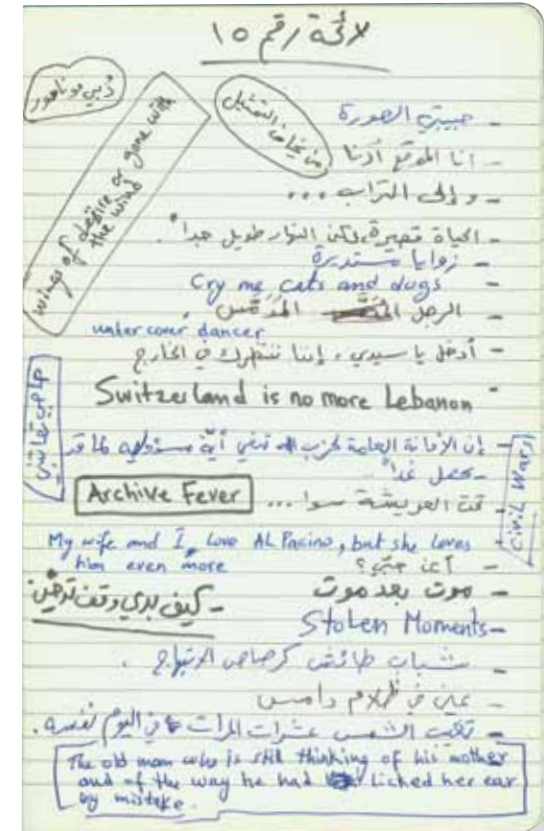 لائحة رقم ١٥
دُبي مونامور
wings of desire or gone with
the wind
من يخاف التمثيل
- حبيبتي الصورة
- أنا الموقع أدنا
- وإلى التراب ...
- الحياة قصيرة، لكن النهار طويل جداً.
- زوايا مستديرة
- Cry me cats and dogs
- الرجل المقدّس.
undercover dancer
- أدخل يا سيدي، إننا ننتظرك في الخارج
- Switzerland is no more Lebanon
- إن الأمانة العامة لحزب الله تنفي أيّة مسؤولية لما قد
يحصل غداً
Civil Wars
- تحت العريشة سوا ...
Archive Fever
- My wife and I, love AL Pacino, but she loves
him even more
- أعن جنّي؟
- موت بعد موت
- كيف بدي وقف تدخين
- Stolen Moments
- شباب طائش كرصاص الابتهاج.
- عين في ظلام دامس
- تغيب الشمس عشرات المرات في اليوم نفسه.
The old man who is still thinking of his mother
and of the way he had licked her ear
by mistake.